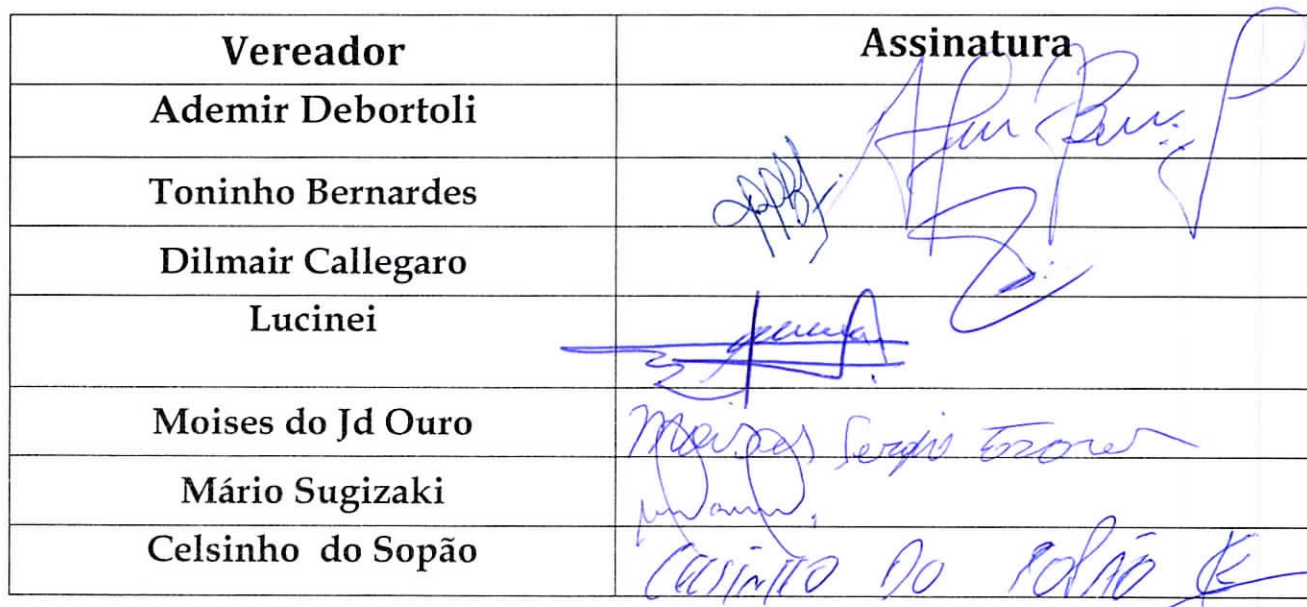 Vereador Assinatura
Ademir Debortoli
Toninho Bernardes
Dilmair Callegaro
Lucinei
Moises do Jd Ouro Moises Sergio
Mário Sugizaki
Celsinho do Sopão Celsinho do Sopão